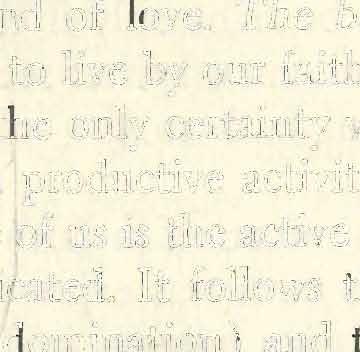 of love. The
to live by our faith
only certainty
productive activit
of us is the active
It follows
domination) and